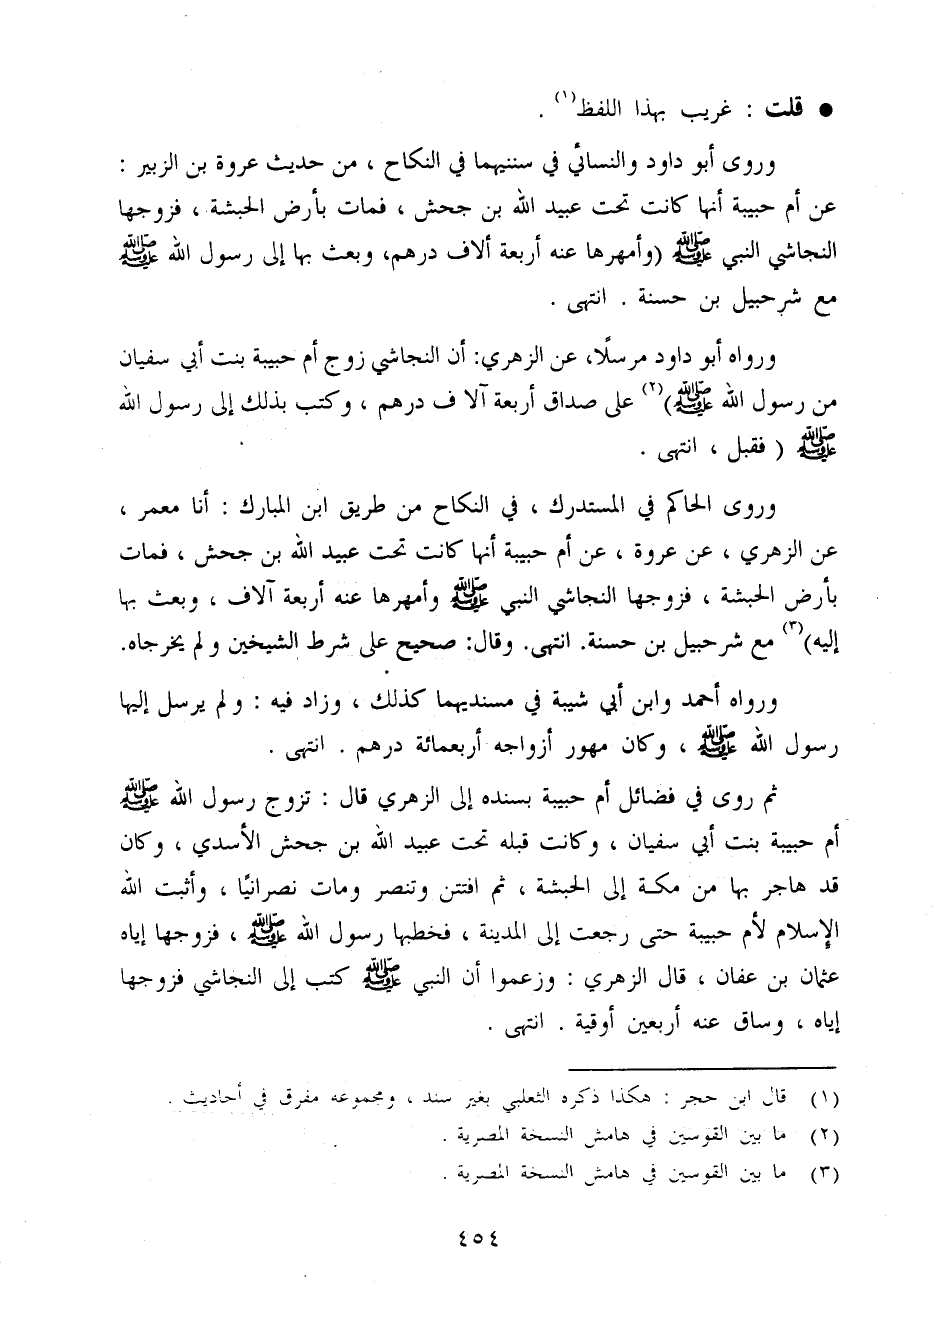 ● قلت : غريب بهذا اللفظ(١) .
وروى أبو داود والنسائي في سننيهما في النكاح ، من حديث عروة بن الزبير :
عن أم حبيبة أنها كانت تحت عبيد الله بن جحش ، فمات بأرض الحبشة ، فزوجها
النجاشي النبي ﷺ (وأمهرها عنه أربعة ألاف درهم، وبعث بها إلى رسول الله ﷺ
مع شرحبيل بن حسنة . انتهى .
ورواه أبو داود مرسلًا، عن الزهري: أن النجاشي زوج أم حبيبة بنت أبي سفيان
من رسول الله ﷺ)(٢) على صداق أربعة آلا ف درهم ، وكتب بذلك إلى رسول الله
ﷺ ( فقبل ، انتهى .
وروى الحاكم في المستدرك ، في النكاح من طريق ابن المبارك : أنا معمر ،
عن الزهري ، عن عروة ، عن أم حبيبة أنها كانت تحت عبيد الله بن جحش ، فمات
بأرض الحبشة ، فزوجها النجاشي النبي ﷺ وأمهرها عنه أربعة آلاف ، وبعث بها
إليه)(٣) مع شرحبيل بن حسنة. انتهى. وقال: صحيح على شرط الشيخين ولم يخرجاه.
ورواه أحمد وابن أبي شيبة في مسنديهما كذلك ، وزاد فيه : ولم يرسل إليها
رسول الله ﷺ ، وكان مهور أزواجه أربعمائة درهم . انتهى .
ثم روى في فضائل أم حبيبة بسنده إلى الزهري قال : تزوج رسول الله ﷺ
أم حبيبة بنت أبي سفيان ، وكانت قبله تحت عبيد الله بن جحش الأسدي ، وكان
قد هاجر بها من مكة إلى الحبشة ، ثم افتتن وتنصر ومات نصرانيًا ، وأثبت الله
الإسلام لأم حبيبة حتى رجعت إلى المدينة ، فخطبها رسول الله ﷺ ، فزوجها إياه
عثمان بن عفان ، قال الزهري : وزعموا أن النبي ﷺ كتب إلى النجاشي فزوجها
إياه ، وساق عنه أربعين أوقية . انتهى .
(١) قال ابن حجر : هكذا ذكره الثعلبي بغير سند ، ومجموعه مفرق في أحاديث .
(٢) ما بين القوسين في هامش النسخة المصرية .
(٣) ما بين القوسين في هامش النسخة المصرية .
٤٥٤